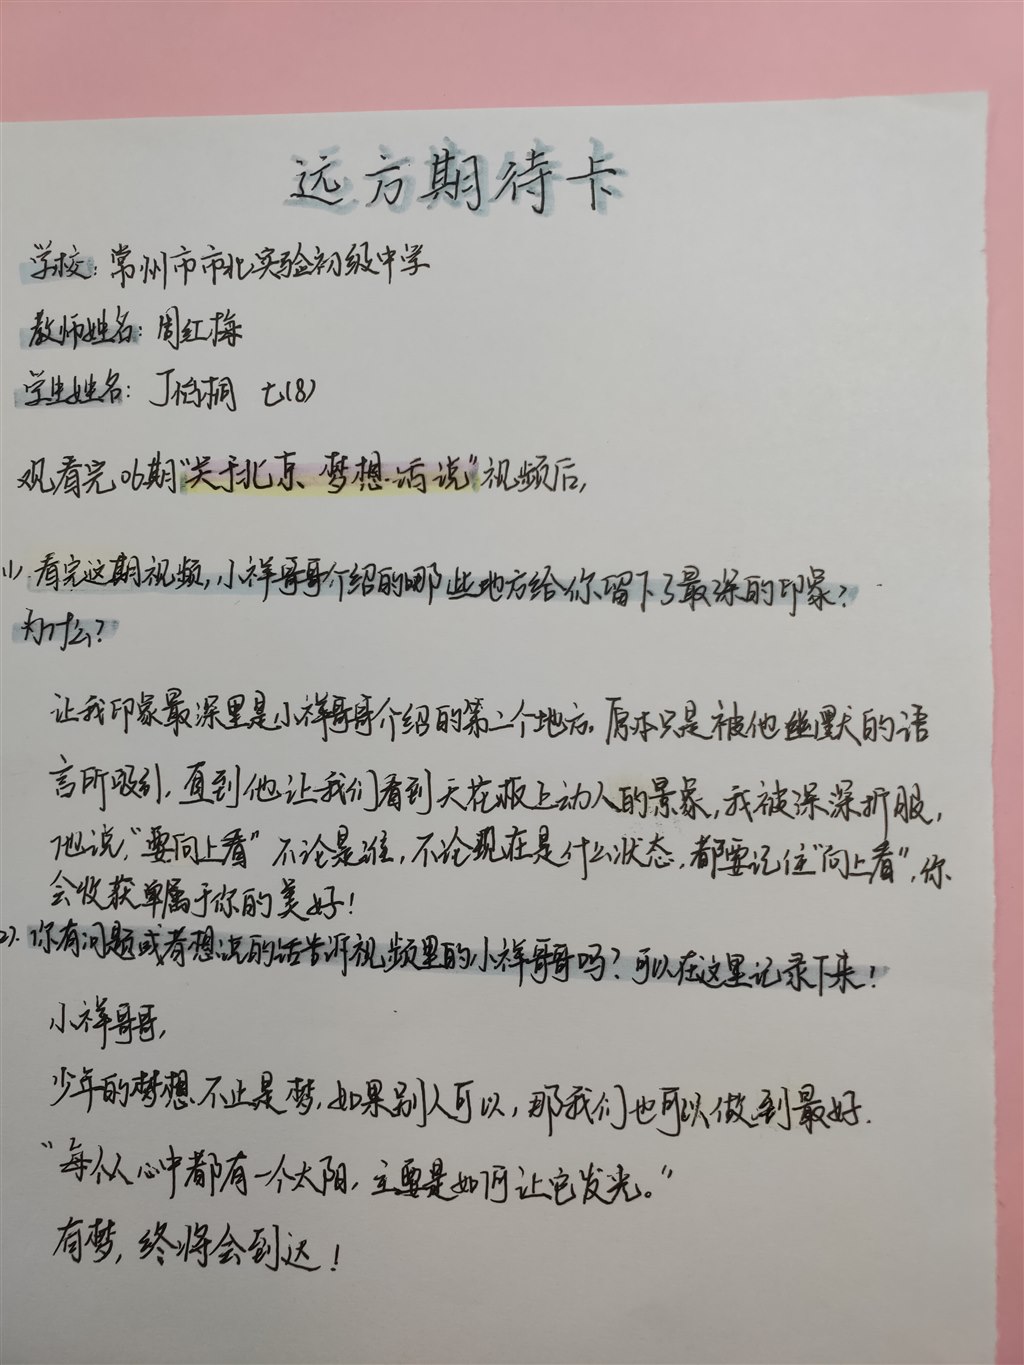 远方期待卡
学校：常州市市北实验初级中学
教师姓名：周红梅
学生姓名：丁怡桐 七(8)
观看完06期"关于北京 梦想·话说"视频后，
1).看完这期视频，小祥哥哥介绍的哪些地方给你留下了最深的印象？
为什么？
让我印象最深里是小祥哥哥介绍的第二个地方。原本只是被他幽默的语
言所吸引，直到他让我们看到天花板上动人的景象，我被深深折服，
他说，"要向上看" 不论是谁，不论现在是什么状态，都要记住"向上看"，你
会收获单属于你的美好！
2).你有问题或者想说的话告诉视频里的小祥哥哥吗？可以在这里记录下来！
小祥哥哥，
少年的梦想不止是梦，如果别人可以，那我们也可以做到最好.
"每个人心中都有一个太阳，主要是如何让它发光。"
有梦，终将会到达！